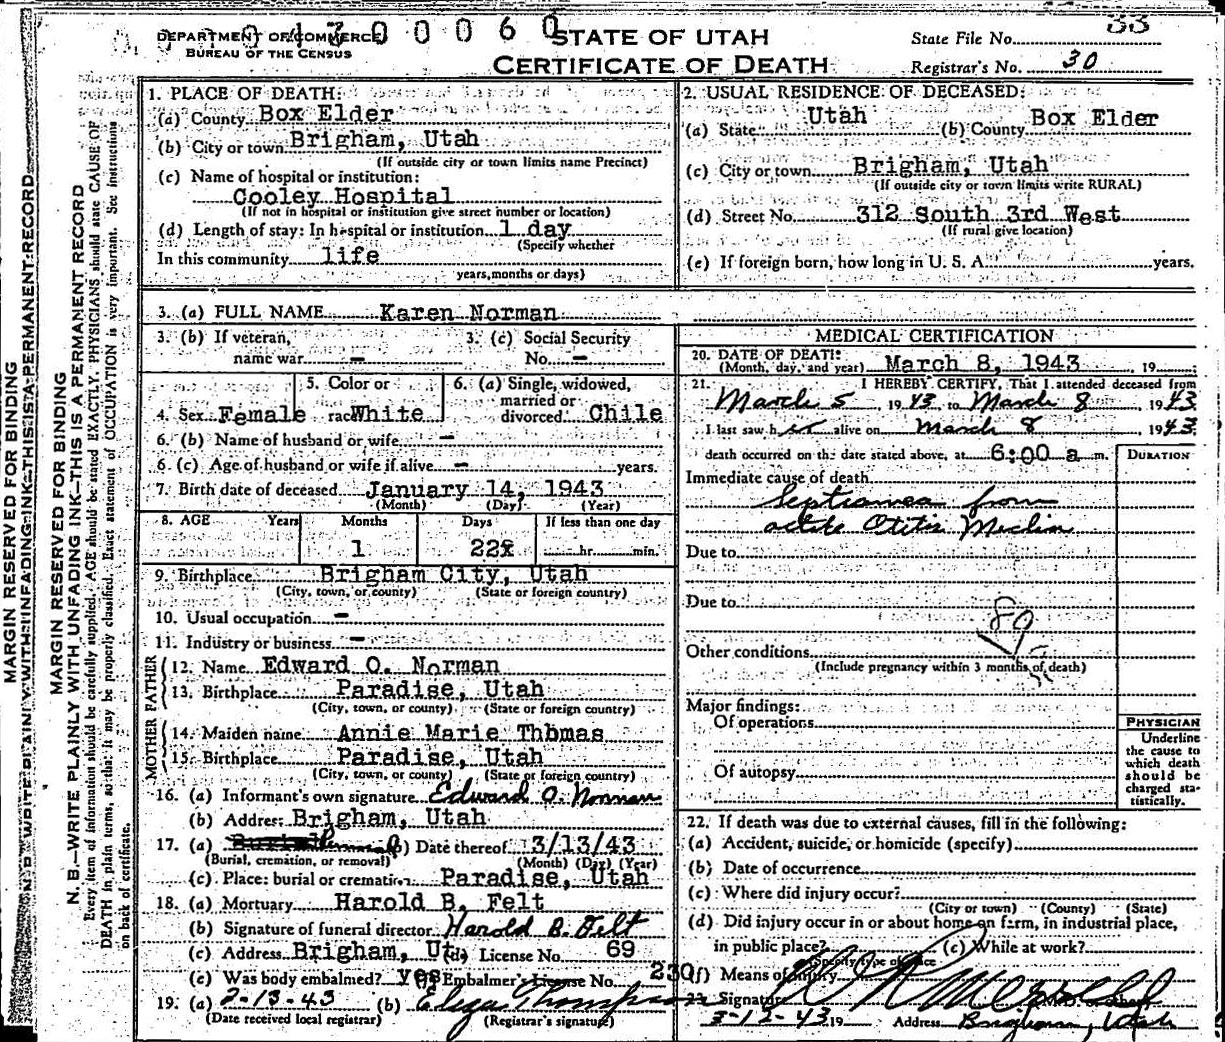 DEPARTMENT OF COMMERCE
BUREAU OF THE CENSUS
0 0 0 6 0
STATE OF UTAH
CERTIFICATE OF DEATH
State File No. 33
Registrar's No. 30
MARGIN RESERVED FOR BINDING
N. B. WRITE PLAINLY WITH UNFADING INK—THIS IS A PERMANENT RECORD
MARGIN RESERVED FOR BINDING
N. B.—WRITE PLAINLY WITH UNFADING INK—THIS IS A PERMANENT RECORD
Every item of information should be carefully supplied. AGE should be stated EXACTLY. PHYSICIANS should state CAUSE OF
DEATH in plain terms, so that it may be properly classified. Exact statement of OCCUPATION is very important. See instructions
on back of certificate.
1. PLACE OF DEATH:
(a) County Box Elder
(b) City or town Brigham, Utah
(If outside city or town limits name Precinct)
(c) Name of hospital or institution:
Cooley Hospital
(If not in hospital or institution give street number or location)
(d) Length of stay: In hospital or institution 1 day
(Specify whether
In this community life
years, months or days)
2. USUAL RESIDENCE OF DECEASED:
(a) State Utah (b) County Box Elder
(c) City or town Brigham, Utah
(If outside city or town limits write RURAL)
(d) Street No. 312 South 3rd West
(If rural give location)
(e) If foreign born, how long in U. S. A. years.
3. (a) FULL NAME Karen Norman
3. (b) If veteran, name war – 3. (c) Social Security No. –
4. Sex Female 5. Color or race White 6. (a) Single, widowed, married or divorced Chile
6. (b) Name of husband or wife –
6. (c) Age of husband or wife if alive – years.
7. Birth date of deceased January 14, 1943
(Month) (Day) (Year)
8. AGE Years Months Days If less than one day
1 22 hr. min.
9. Birthplace Brigham City, Utah
(City, town, or county) (State or foreign country)
10. Usual occupation –
11. Industry or business –
FATHER
12. Name Edward O. Norman
13. Birthplace Paradise, Utah
(City, town, or county) (State or foreign country)
MOTHER
14. Maiden name Annie Marie Thomas
15. Birthplace Paradise, Utah
(City, town, or county) (State or foreign country)
16. (a) Informant's own signature Edward O. Norman
(b) Address Brigham, Utah
17. (a) (b) Date thereof 3/13/43
(Burial, cremation, or removal) (Month) (Day) (Year)
(c) Place: burial or cremation Paradise, Utah
18. (a) Mortuary Harold B. Felt
(b) Signature of funeral director Harold B. Felt
(c) Address Brigham, Ut (d) License No. 69
(e) Was body embalmed? yes (f) Embalmer's License No. 230
19. (a) 2-13-43 (b) Eliza Thompson
(Date received local registrar) (Registrar's signature)
MEDICAL CERTIFICATION
20. DATE OF DEATH:
(Month, day, and year) March 8, 1943, 19
21. I HEREBY CERTIFY, That I attended deceased from
March 5, 1943 to March 8, 1943
I last saw her alive on March 8 1943
death occurred on the date stated above, at 6:00 a m.
DURATION
Immediate cause of death
Septicamea from
acute Otitis Media
Due to
Due to
89
Other conditions
(Include pregnancy within 3 months of death)
Major findings:
Of operations
Of autopsy
PHYSICIAN
Underline
the cause to
which death
should be
charged sta-
tistically.
22. If death was due to external causes, fill in the following:
(a) Accident, suicide, or homicide (specify)
(b) Date of occurrence
(c) Where did injury occur?
(City or town) (County) (State)
(d) Did injury occur in or about home on farm, in industrial place,
in public place? (e) While at work?
(Specify type of place
(f) Means of injury
23. Signature
3-12-43 19 Address Brigham, Utah